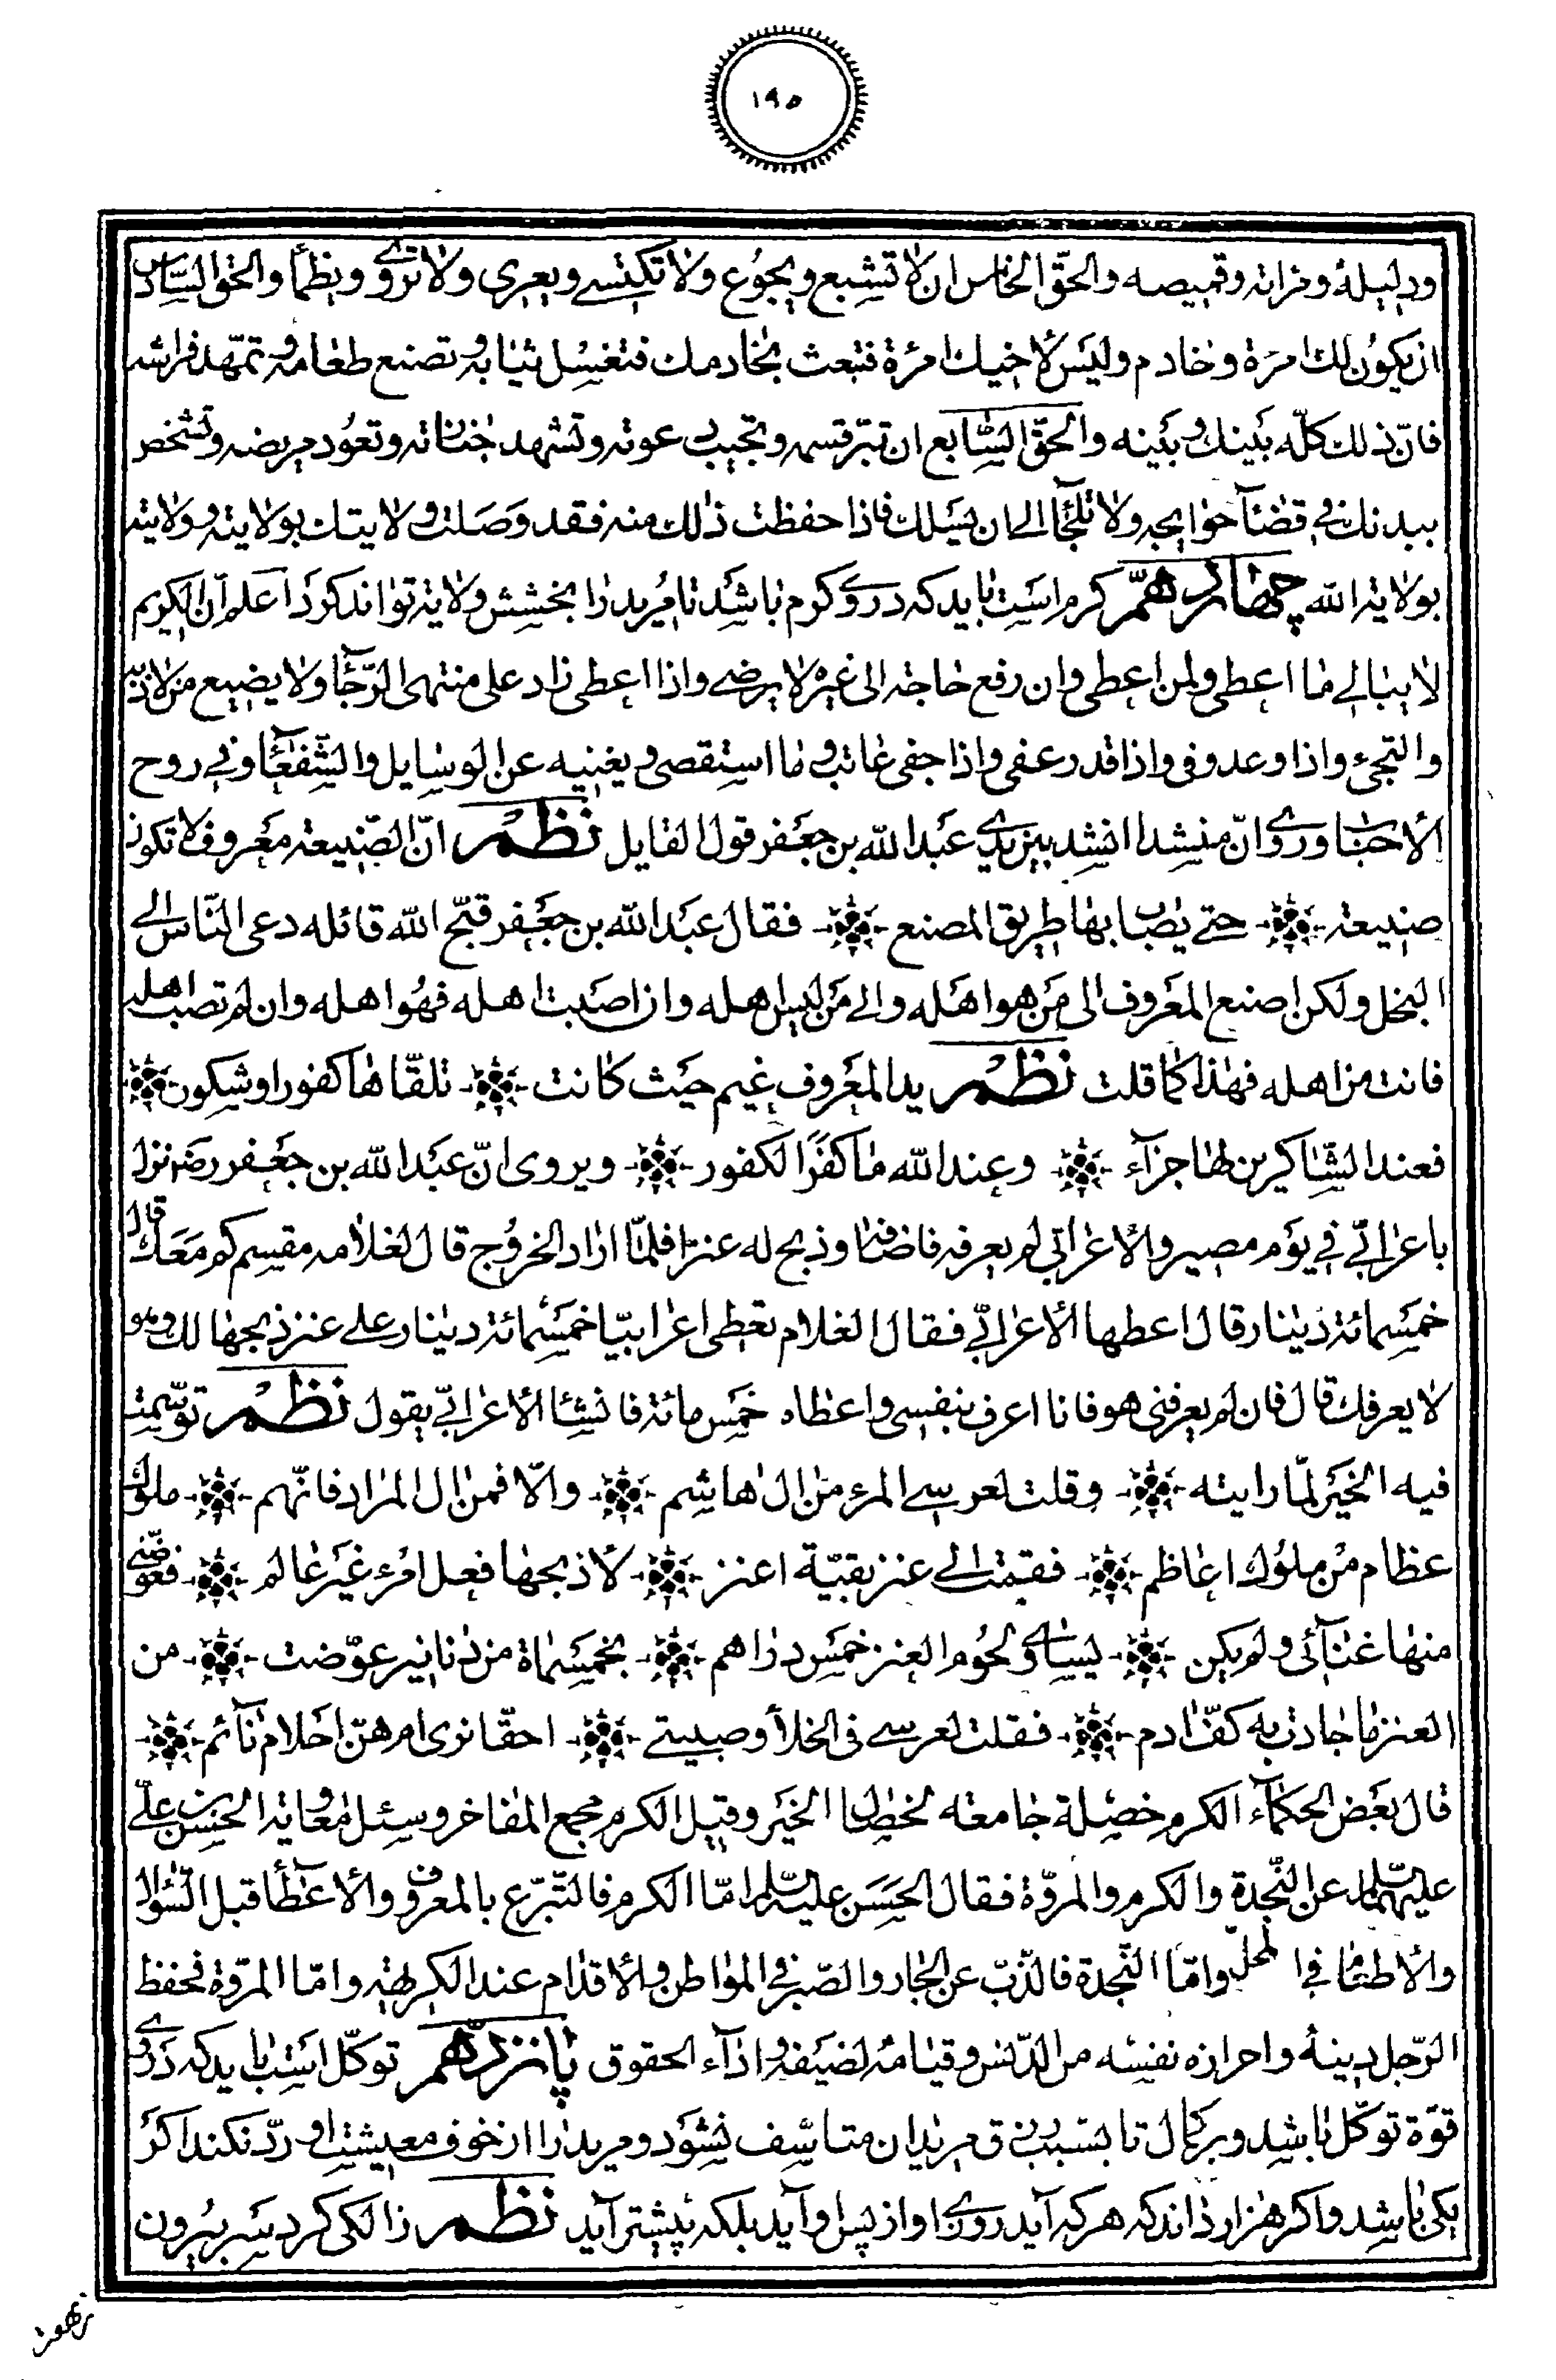 ١٩٥
ودليله ومراته وقميصه والحقّ الخامس ان لا تشبع ويجوع ولا تكتسے ويعرى ولا تروے ويظمأ والحق السّادس
ان يكون لك امرة وخادم وليس لأخيك امرئة فتبعث بخادمك فتغسل ثيابه وتصنع طعامه وتمهّد فراشه
فانّ ذلك كلّه بينك وبينه والحقّ السّابع ان تبرّ قسمه وتجيب دعوته وتشهد جنازته وتعود مريضه وتشخص
ببدنك فے قضآء حوايجه ولا تلجأ الے ان يسئلك فاذا حفظت ذلك منه فقد وصلت ولايتك بولايته وولايته
بولاية الله چهاردهم كرم است بايد كه دروے كرم باشد تا مريد را بخشش ولاية تواند كرد اعلم ان الكريم
لا يبالے ما اعطى ولمن اعطى وان رفع حاجة الى غيره لا يرضے واذا اعطى زاد على منتهى الرّجآء ولا يضيع من لاذ به
والتجىء واذا وعد وفى واذا قدر عفى واذا جفى عاتب وما استقصى ويغنيه عن الوسايل والشّفعآء وفے روح
الأحباب وروے انّ منشدا انشد بين يدے عبد الله بن جعفر قول القايل نظم انّ الصّنيعة معروف لا تكون
صنيعة حتے يصاب بها طريق المصنع فقال عبد الله بن جعفر قبّح الله قائله دعى النّاس الے
البخل ولكن اصنع المعروف الى من هو اهله والے من ليس اهله وان اصبت اهله فهو اهله وان لم تصب اهله
فانت من اهله فهذا كما قلت نظم يد المعروف غيم حيث كانت تلقّاها كفور او شكور
فعند الشّاكرين لها جزآء وعند الله ما كفر الكفور ويروى انّ عبد الله بن جعفر رضه نزل
باعرابىّ فے يوم مصير والأعرابى لم يعرفه فاضافه وذبح له عنزا فلمّا اراد الخروج قال لغلامه مقسم كم معك قال
خمسمائة دينار قال اعطها الأعرابىّ فقال الغلام تعطى اعرابيّا خمسمائة دينار على عنز ذبحها لك وهو
لا يعرفك قال فان لم يعرفنى هو فانا اعرف بنفسى واعطاه خمس مائة فانشأ الأعرابىّ يقول نظم توسّمت
فيه الخير لمّا رايته وقلت لعرسے المرء من ال هاشم والّا فمن ال المرار فانّهم ملوك
عظام من ملوك اعاظم فقمت الے عنز بقيّة اعنز لأذبحها فعل امرء غير عالم فعوّضنے
منها غنآئى ولم يكن يساوى لحوم العنز خمس دراهم بخمسماة من دنانير عوّضت من
العنز ما جادت به كفّ ادم فقلت لعرسے فى الخلأ وصبيتے احقّا نرى ام هنّ احلام نآئم
قال بعض الحكمآء الكرم خصيلة جامعه لخصال الخير وقيل الكرم مجمع المفاخر وسئل معاوية الحسن بن علىّ
عليهما السلام عن النّجدة والكرم والمروّة فقال الحسن عليه السلام امّا الكرم فالتّبرّع بالمعروف والأعطآء قبل السّؤال
والأطعام فى المحلّ وامّا النّجدة فالذّبّ عن الجار والصّبر فے المواطن والأقدام عند الكريهة وامّا المروّة فحفظ
الرّجل دينه واحرازه نفسه من الدّنس وقيامه لضيفه واداآء الحقوق پانزدهم توكّل است بايد كه دروے
قوّة توكّل باشد وبر كمال تا بسبب رزق مريدان متاسّف نشود ومريد را از خوف معيشت او ردّ نكند اكر
يكى باشد واكر هزار داند كه هر كه آيد روزے او از پس او آيد بلكه پيشتر آيد نظم زالكى كرد سر بيرون